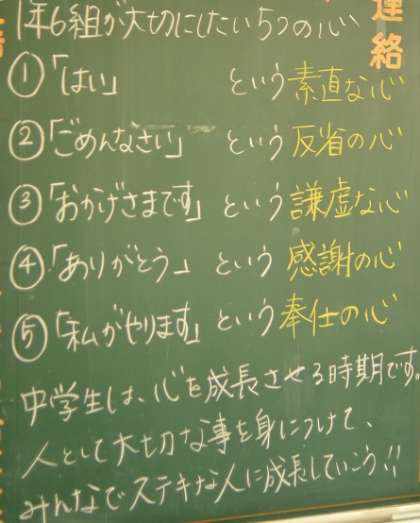 1年6組が大切にしたい5つの心
連絡
①「はい」 という素直な心
②「ごめんなさい」 という反省の心
③「おかげさまです」という謙虚な心
④「ありがとう」 という感謝の心
⑤「私がやります」という奉仕の心
中学生は、心を成長させる時期です。
人として大切な事を身につけて、
みんなでステキな人に成長していこう!!